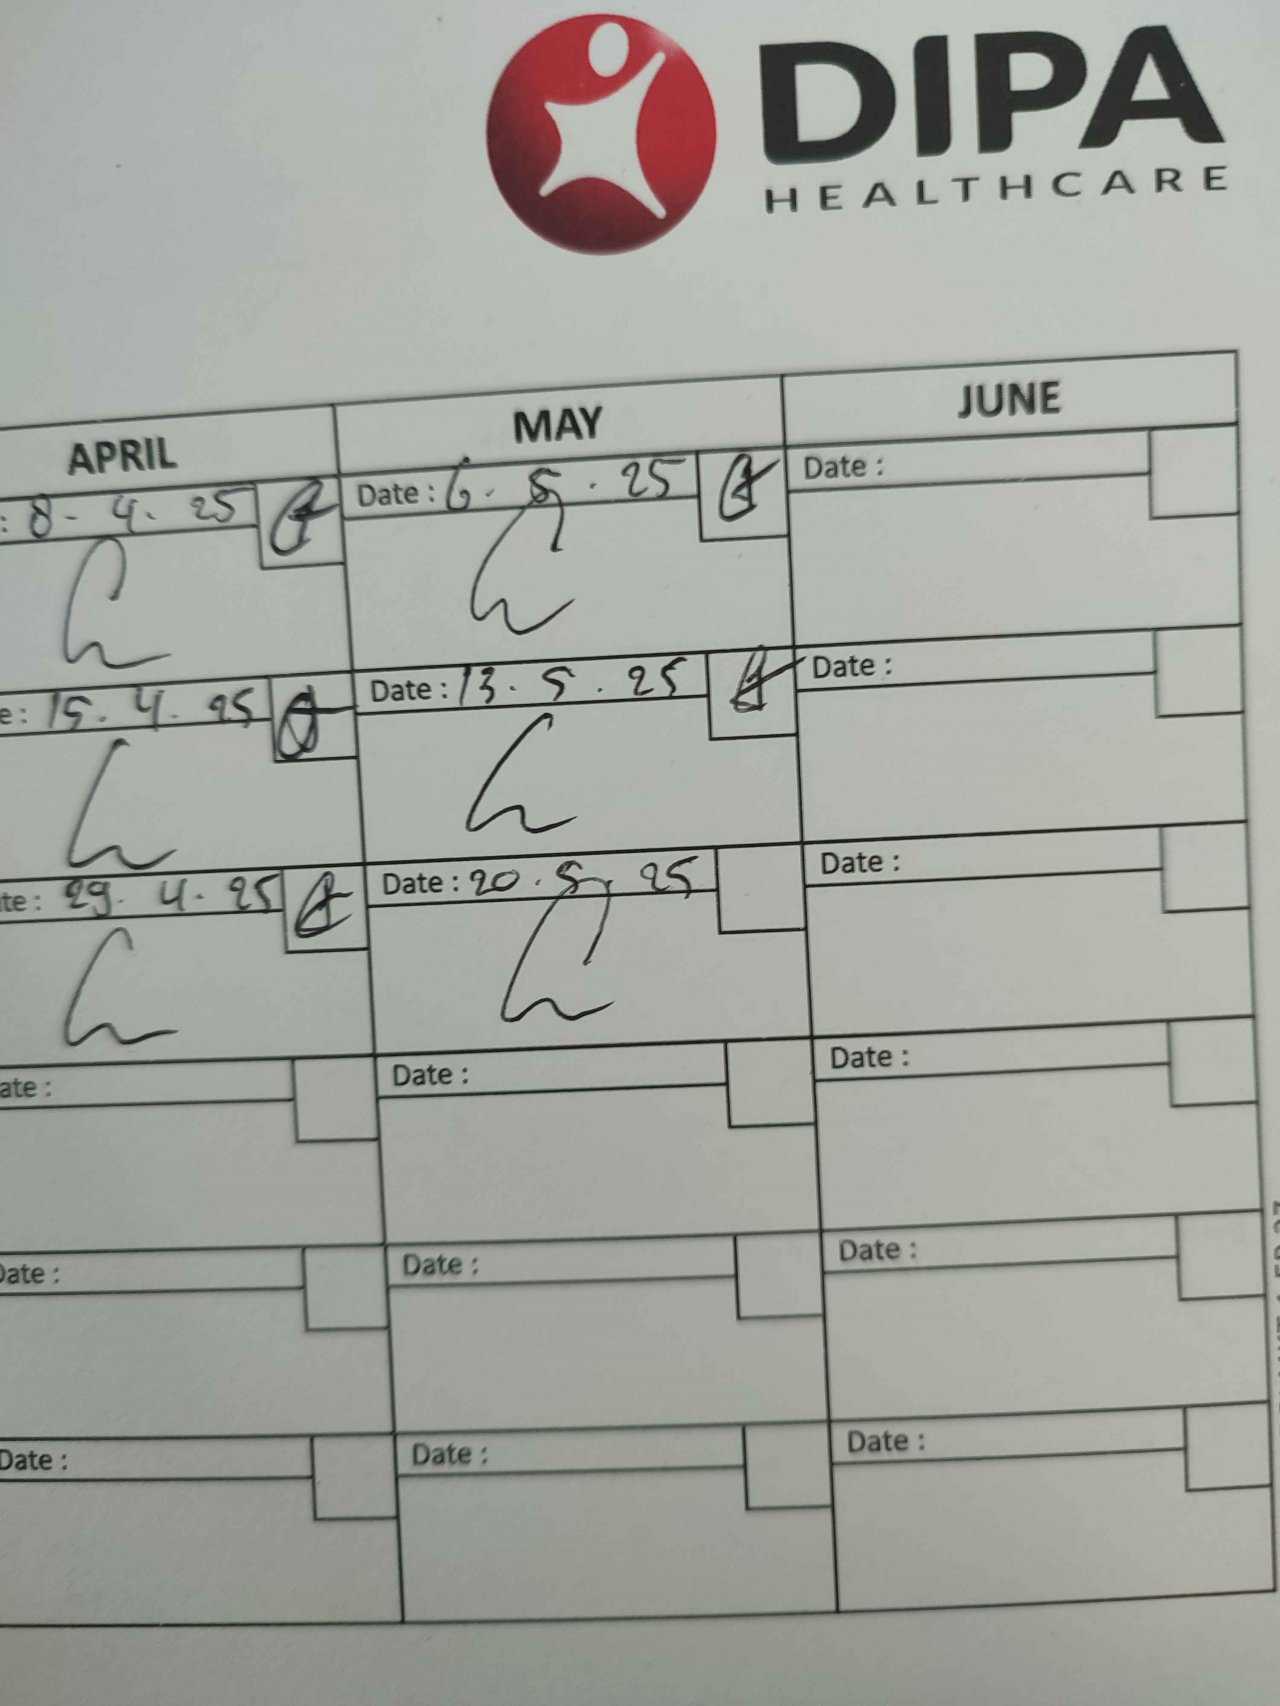 DIPA
HEALTHCARE
APRIL MAY JUNE
: 8 - 4 . 25 Date : 6 . 5 . 25 Date :
e : 15 . 4 . 25 Date : 13 . 5 . 25 Date :
te : 29 . 4 . 25 Date : 20 . 5 . 25 Date :
ate : Date : Date :
Date : Date : Date :
Date : Date : Date :